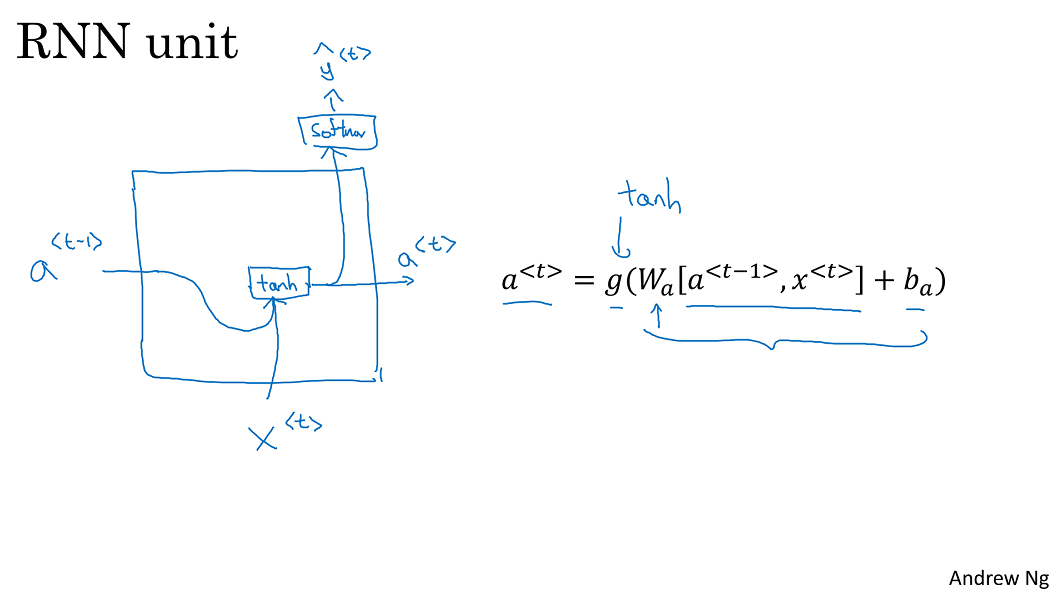 RNN unit
ŷ<t>
softmax
tanh
a<t-1>
a<t>
tanh
a<t> = g(Wa[a<t−1>, x<t>] + ba)
x<t>
Andrew Ng